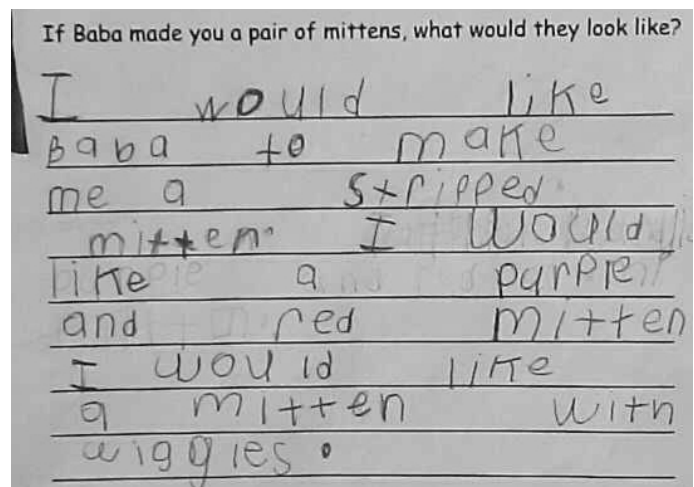 If Baba made you a pair of mittens, what would they look like?
I would like
Baba to make
me a stripped
mitten. I would
like a purple
and red mitten
I would like
a mitten with
wiggles.